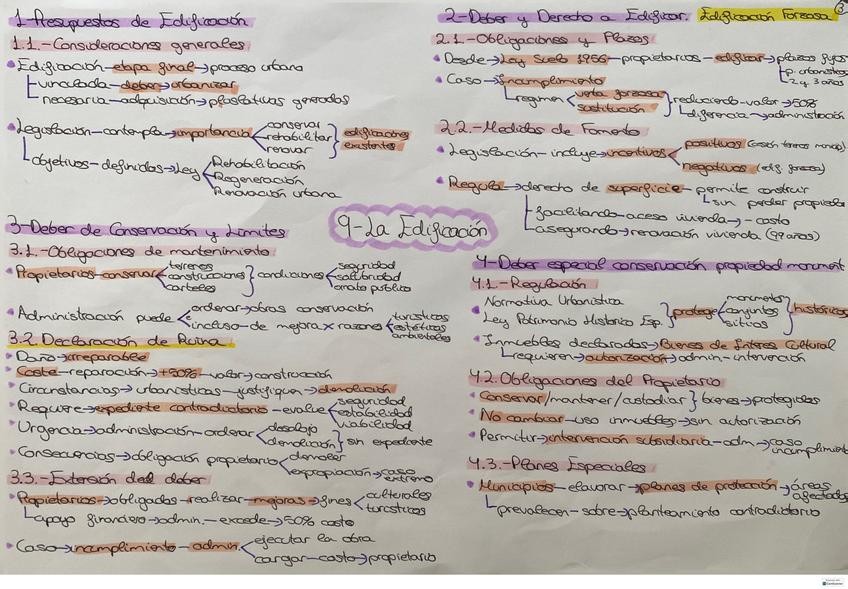 1-Presupuestos de Edificación
1.1.-Consideraciones generales
Edificación-etapa final→proceso urbano
vinculada-deber→urbanizar
necesaria-adquisición→plusvalías generadas
Legislación-contempla→importancia
conservar
rehabilitar
renovar
edificaciones existentes
objetivos-definidos→Ley
Rehabilitación
Regeneración
Renovación urbana
2-Deber y Derecho a Edificar. Edificación Forzosa
2.1.-Obligaciones y Plazos
Desde→Ley Suelo 1956-propietarios-edificar→plazos fijos
p. urbanístico
2 y 3 años
Caso→Incumplimiento
regimen
venta forzosa
sustitución
reduciendo-valor→50%
diferencia→administración
2.2.-Medidas de Fomento
Legislación-incluye→incentivos
positivos
negativos (edif. forzosa)
Regula→derecho de superficie-permite construir
sin perder propiedad
facilitando-acceso vivienda→-costo
asegurando→renovación vivienda (99 años)
9-La Edificación
3-Deber de Conservación y Límites
3.1.-Obligaciones de mantenimiento
Propietarios-conservar
terrenos
construcciones
carteles
condiciones
seguridad
salubridad
ornato público
Administración puede
ordenar→obras conservación
incluso de mejora x razones
turísticas
estéticas
ambientales
3.2 Declaración de Ruina.
Daño→irreparable
Coste-reparación→+50%-valor→construcción
Circunstancias→urbanísticas-justifiquen→demolición
Requiere→expediente contradictorio-evalue
seguridad
estabilidad
viabilidad
Urgencia→administración-ordenar
desalojo
demolición
sin expediente
Consecuencias→obligación propietario
demoler
expropiación→caso extremo
3.3.-Extensión del deber
Propietarios→obligados-realizar-mejoras→fines
culturales
turísticos
apoyo financiero→admin.-excede→50% costo
Caso→incumplimiento-admin.
ejecutar la obra
cargar-costo→propietario
4-Deber especial conservación propiedad monument
4.1.-Regulación
Normativa Urbanística
Ley Patrimonio Histórico Esp.
protege
monumetos
conjuntos
sitios
históricos
Inmuebles declarados→Bienes de Interes Cultural
requieren→autorización→admin-intervención
4.2. Obligaciones del Propietario
Conservar/mantener/custodiar} bienes→protegidos
No cambiar-uso inmuebles→sin autorización
Permitir→intervención subsidiaria-adm→caso incumplimiento
4.3.-Planes Especiales
Municipios-elavorar→planes de protección→áreas afectadas
prevalecen-sobre→planteamiento contradictorio